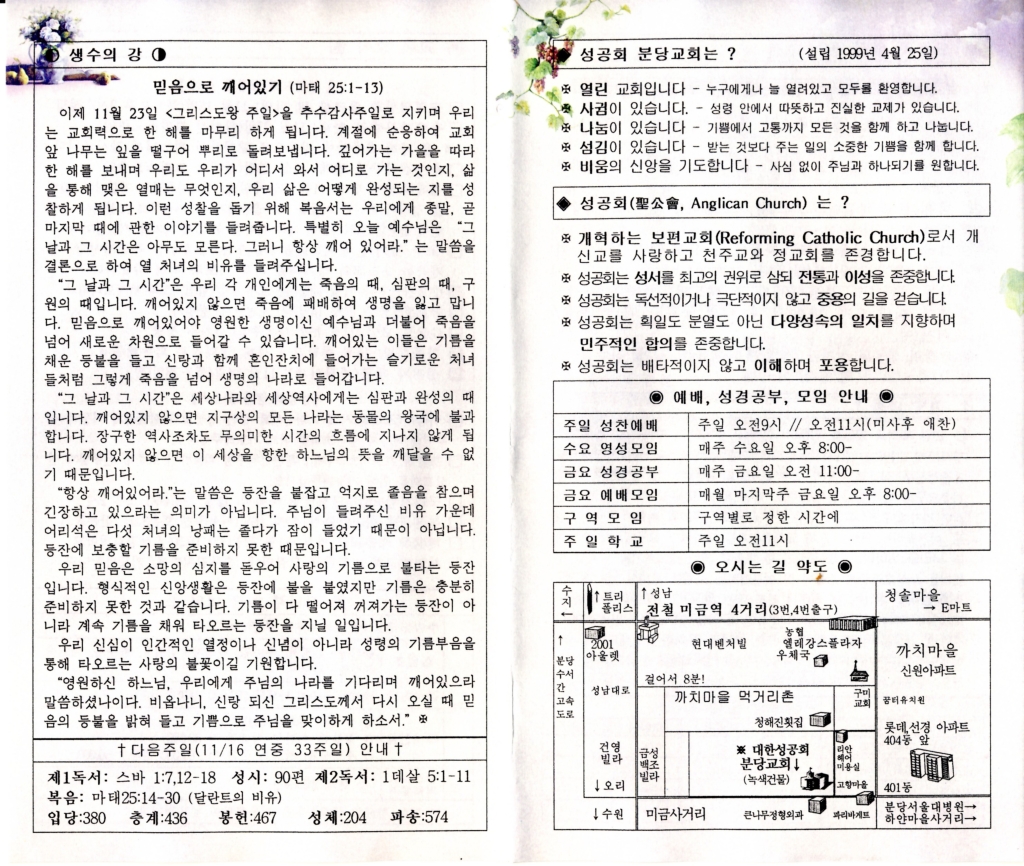 ◐ 생수의 강 ◑
믿음으로 깨어있기 (마태 25:1-13)
이제 11월 23일 <그리스도왕 주일>을 추수감사주일로 지키며 우리
는 교회력으로 한 해를 마무리 하게 됩니다. 계절에 순응하여 교회
앞 나무는 잎을 떨구어 뿌리로 돌려보냅니다. 깊어가는 가을을 따라
한 해를 보내며 우리도 우리가 어디서 와서 어디로 가는 것인지, 삶
을 통해 맺은 열매는 무엇인지, 우리 삶은 어떻게 완성되는 지를 성
찰하게 됩니다. 이런 성찰을 돕기 위해 복음서는 우리에게 종말, 곧
마지막 때에 관한 이야기를 들려줍니다. 특별히 오늘 예수님은 “그
날과 그 시간은 아무도 모른다. 그러니 항상 깨어 있어라.” 는 말씀을
결론으로 하여 열 처녀의 비유를 들려주십니다.
“그 날과 그 시간”은 우리 각 개인에게는 죽음의 때, 심판의 때, 구
원의 때입니다. 깨어있지 않으면 죽음에 패배하여 생명을 잃고 맙니
다. 믿음으로 깨어있어야 영원한 생명이신 예수님과 더불어 죽음을
넘어 새로운 차원으로 들어갈 수 있습니다. 깨어있는 이들은 기름을
채운 등불을 들고 신랑과 함께 혼인잔치에 들어가는 슬기로운 처녀
들처럼 그렇게 죽음을 넘어 생명의 나라로 들어갑니다.
“그 날과 그 시간”은 세상나라와 세상역사에게는 심판과 완성의 때
입니다. 깨어있지 않으면 지구상의 모든 나라는 동물의 왕국에 불과
합니다. 장구한 역사조차도 무의미한 시간의 흐름에 지나지 않게 됩
니다. 깨어있지 않으면 이 세상을 향한 하느님의 뜻을 깨달을 수 없
기 때문입니다.
“항상 깨어있어라.”는 말씀은 등잔을 붙잡고 억지로 졸음을 참으며
긴장하고 있으라는 의미가 아닙니다. 주님이 들려주신 비유 가운데
어리석은 다섯 처녀의 낭패는 졸다가 잠이 들었기 때문이 아닙니다.
등잔에 보충할 기름을 준비하지 못한 때문입니다.
우리 믿음은 소망의 심지를 돋우어 사랑의 기름으로 불타는 등잔
입니다. 형식적인 신앙생활은 등잔에 불을 붙였지만 기름은 충분히
준비하지 못한 것과 같습니다. 기름이 다 떨어져 꺼져가는 등잔이 아
니라 계속 기름을 채워 타오르는 등잔을 지닐 일입니다.
우리 신심이 인간적인 열정이나 신념이 아니라 성령의 기름부음을
통해 타오르는 사랑의 불꽃이길 기원합니다.
“영원하신 하느님, 우리에게 주님의 나라를 기다리며 깨어있으라
말씀하셨나이다. 비옵나니, 신랑 되신 그리스도께서 다시 오실 때 믿
음의 등불을 밝혀 들고 기쁨으로 주님을 맞이하게 하소서.” ✠
† 다음주일(11/16 연중 33주일) 안내 †
제1독서: 스바 1:7,12-18 성시: 90편 제2독서: 1데살 5:1-11
복음: 마태25:14-30 (달란트의 비유)
입당:380 층계:436 봉헌:467 성체:204 파송:574
◆ 성공회 분당교회는 ? (설립 1999년 4월 25일)
✠ 열린 교회입니다 - 누구에게나 늘 열려있고 모두를 환영합니다.
✠ 사귐이 있습니다. - 성령 안에서 따뜻하고 진실한 교제가 있습니다.
✠ 나눔이 있습니다 - 기쁨에서 고통까지 모든 것을 함께 하고 나눕니다.
✠ 섬김이 있습니다 - 받는 것보다 주는 일의 소중한 기쁨을 함께 합니다.
✠ 비움의 신앙을 기도합니다 - 사심 없이 주님과 하나되기를 원합니다.
◆ 성공회(聖公會, Anglican Church) 는 ?
✠ 개혁하는 보편교회(Reforming Catholic Church)로서 개
신교를 사랑하고 천주교와 정교회를 존경합니다.
✠ 성공회는 성서를 최고의 권위로 삼되 전통과 이성을 존중합니다.
✠ 성공회는 독선적이거나 극단적이지 않고 중용의 길을 걷습니다.
✠ 성공회는 획일도 분열도 아닌 다양성속의 일치를 지향하며
민주적인 합의를 존중합니다.
✠ 성공회는 배타적이지 않고 이해하며 포용합니다.
◉ 예배, 성경공부, 모임 안내 ◉
주일 성찬예배 주일 오전9시 // 오전11시(미사후 애찬)
수요 영성모임 매주 수요일 오후 8:00-
금요 성경공부 매주 금요일 오전 11:00-
금요 예배모임 매월 마지막주 금요일 오후 8:00-
구 역 모 임 구역별로 정한 시간에
주 일 학 교 주일 오전11시
◉ 오시는 길 약도 ◉
수지 ←
↑트리폴리스
↑성남
전철 미금역 4거리(3번,4번출구)
청솔마을
→ E마트
↑ 분당수서간 고속도로
2001 아울렛
현대벤처빌
농협
엘레강스플라자
우체국
까치마을
신원아파트
걸어서 8분!
성남대로
까치마을 먹거리촌
구미교회
꿈터유치원
청해진횟집
롯데,선경 아파트
404동 앞
건영빌라
금성백조빌라
※ 대한성공회
분당교회↓
(녹색건물)
리안헤어미용실
고향마을
401동
↓오리
↓수원
미금사거리
큰나무정형외과
파리바게트
분당서울대병원→
하얀마을사거리→